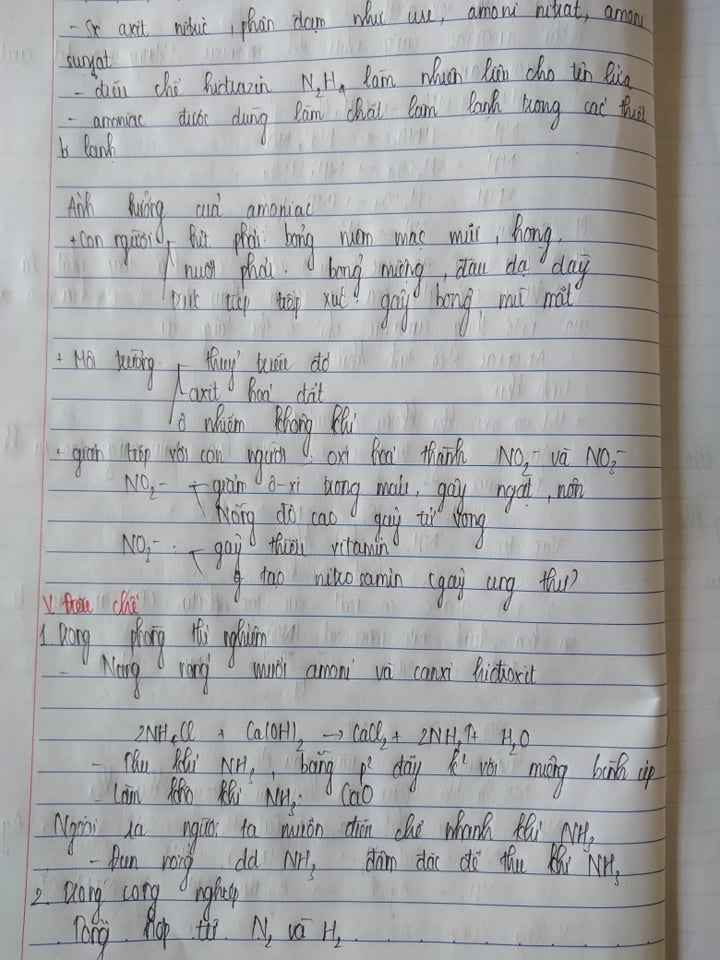 - Sx axit nitric, phân đạm như ure, amoni nitrat, amoni
sunfat
- điều chế hidrazin N₂H₄ làm nhiên liệu cho tên lửa
- amoniac được dùng làm chất làm lạnh trong các thiết
bị lạnh
Ảnh hưởng của amoniac
+ Con người hít phải bỏng niêm mạc mũi, họng.
nuốt phải. bỏng miệng, đau dạ dày
tiếp xúc: gây bỏng mắt
+ Môi trường thuỷ triều đỏ
axit hoá đất
ô nhiễm không khí
+ gián tiếp với con người: oxi hoá thành NO₂⁻ và NO₂⁻
NO₂⁻ giảm ô-xi trong máu, gây ngạt, nôn
Nồng độ cao gây tử vong
NO₂⁻ gây thiếu vitamin
tạo nikosamin (gây ung thư)
V. Điều chế
1. Trong phòng thí nghiệm
- Nung nóng muối amoni và canxi hiđroxit
2NH₄Cl + Ca(OH)₂ → CaCl₂ + 2NH₃↑ + H₂O
- Thu khí NH₃, bằng p² đẩy k² với miệng bình úp
- Làm khô khí NH₃: CaO
Ngoài ra người ta muốn điều chế nhanh khí NH₃
- Đun nóng dd NH₃ đậm đặc để thu khí NH₃
2. Trong công nghiệp
Tổng hợp từ N₂ và H₂